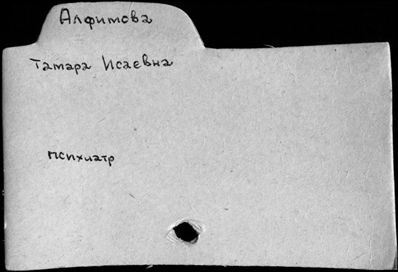 Алфимова
Тамара Исаевна
психиатр